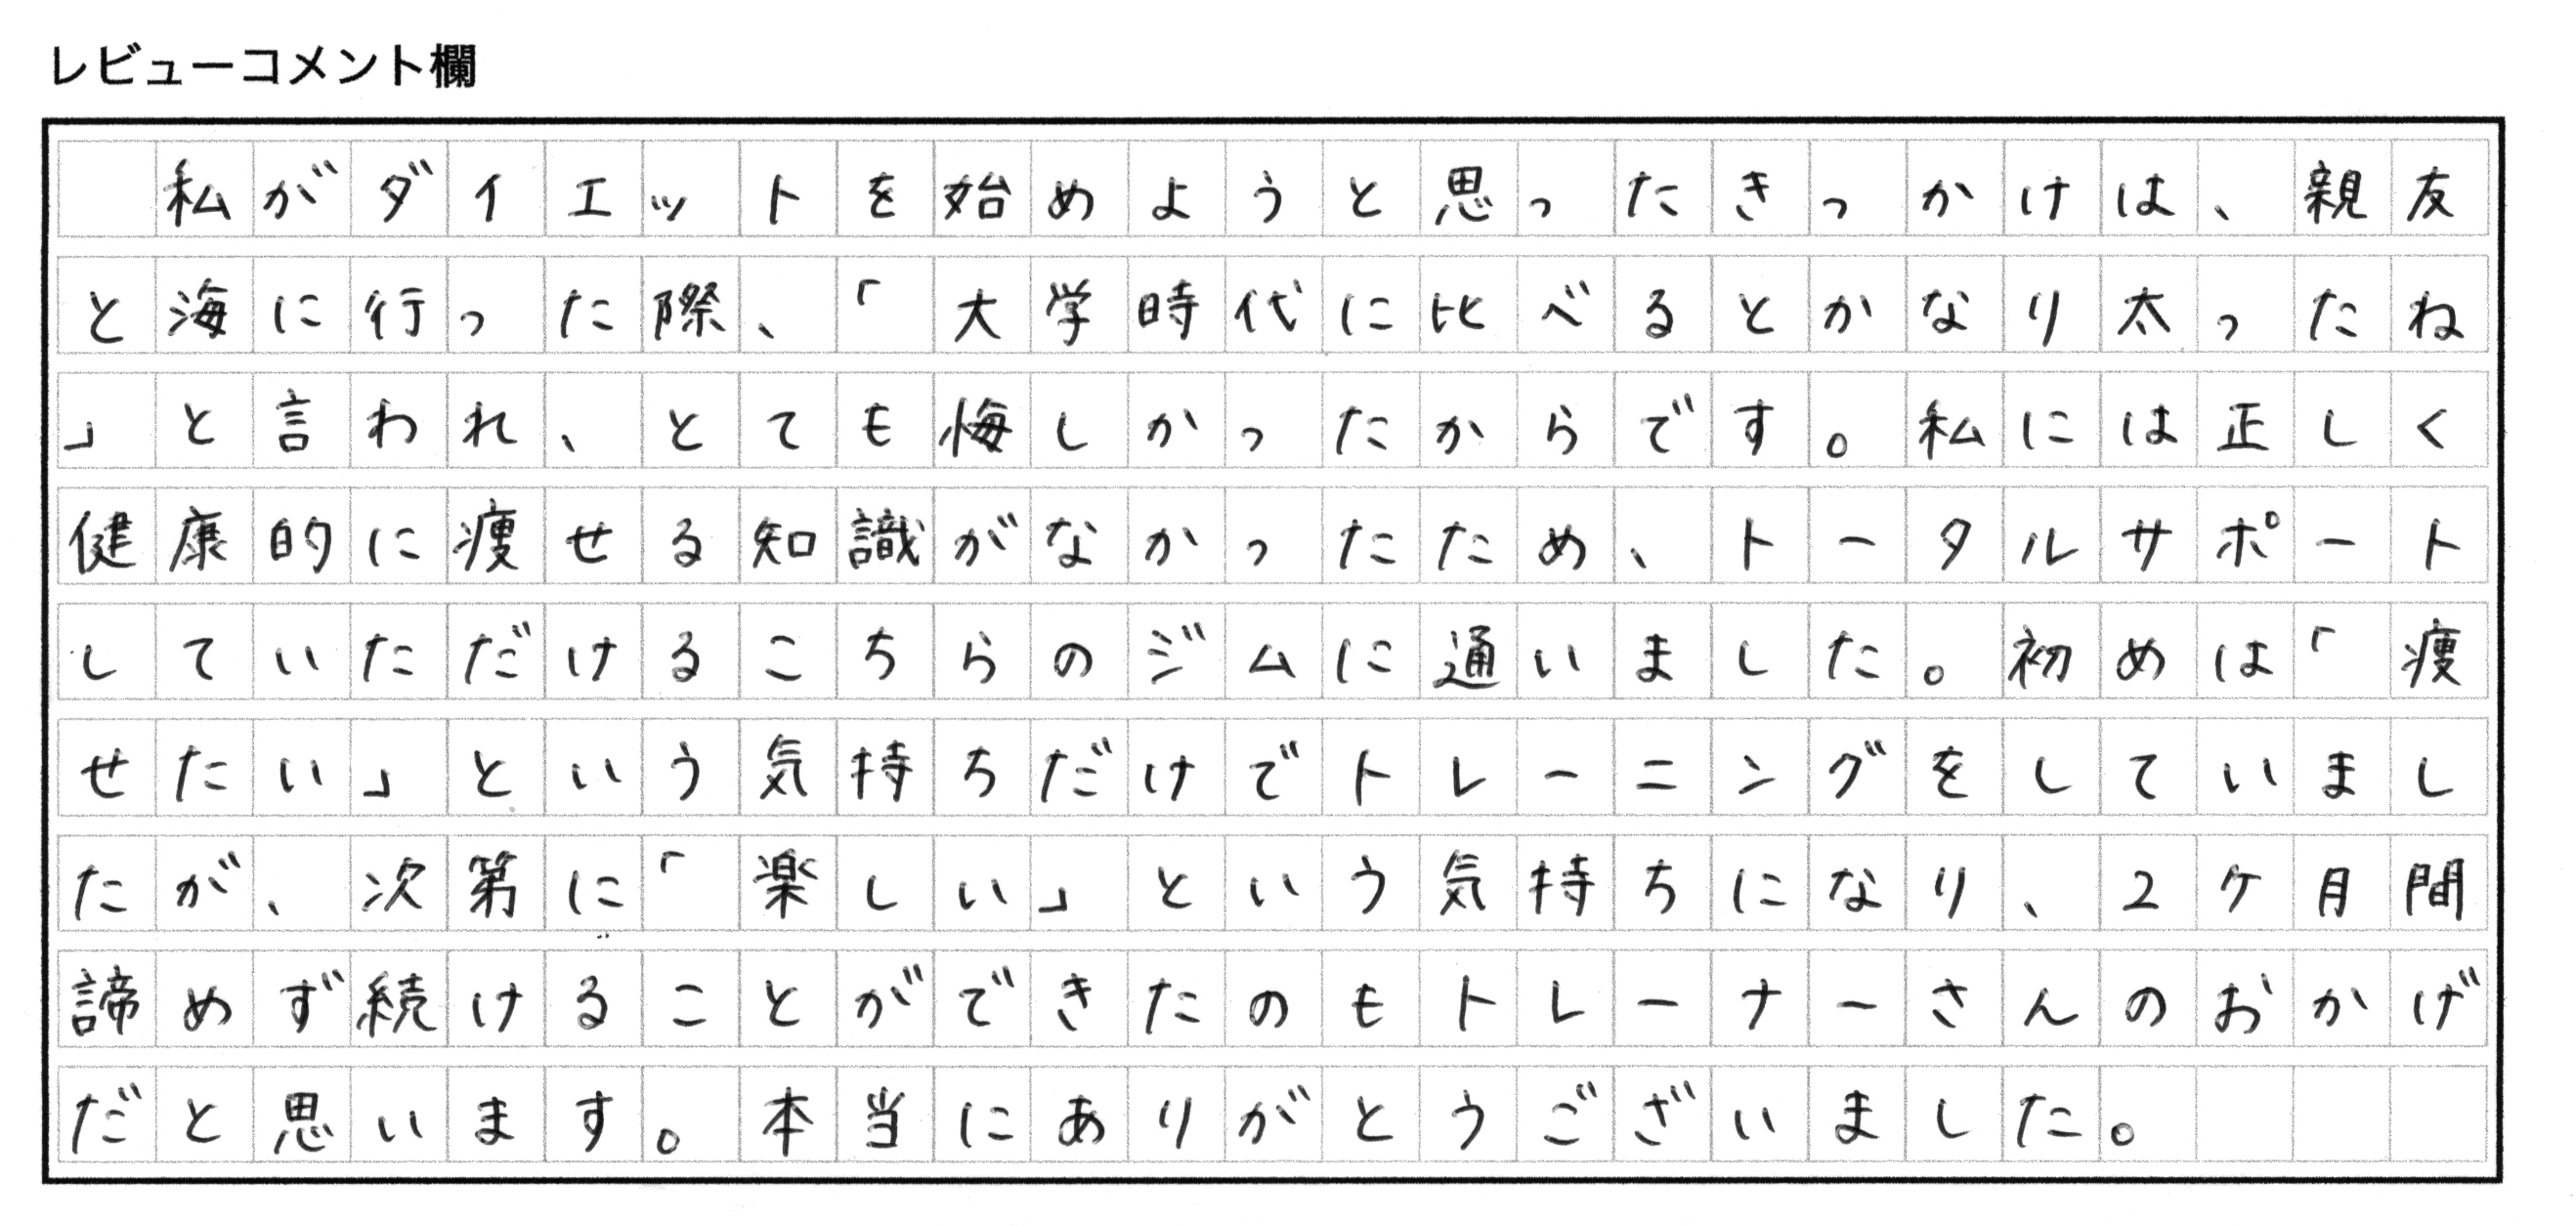 レビューコメント欄
　私がダイエットを始めようと思ったきっかけは、親友
と海に行った際、「大学時代に比べるとかなり太ったね
」と言われ、とても悔しかったからです。私には正しく
健康的に痩せる知識がなかったため、トータルサポート
していただけるこちらのジムに通いました。初めは「痩
せたい」という気持ちだけでトレーニングをしていまし
たが、次第に「楽しい」という気持ちになり、2ケ月間
諦めず続けることができたのもトレーナーさんのおかげ
だと思います。本当にありがとうございました。